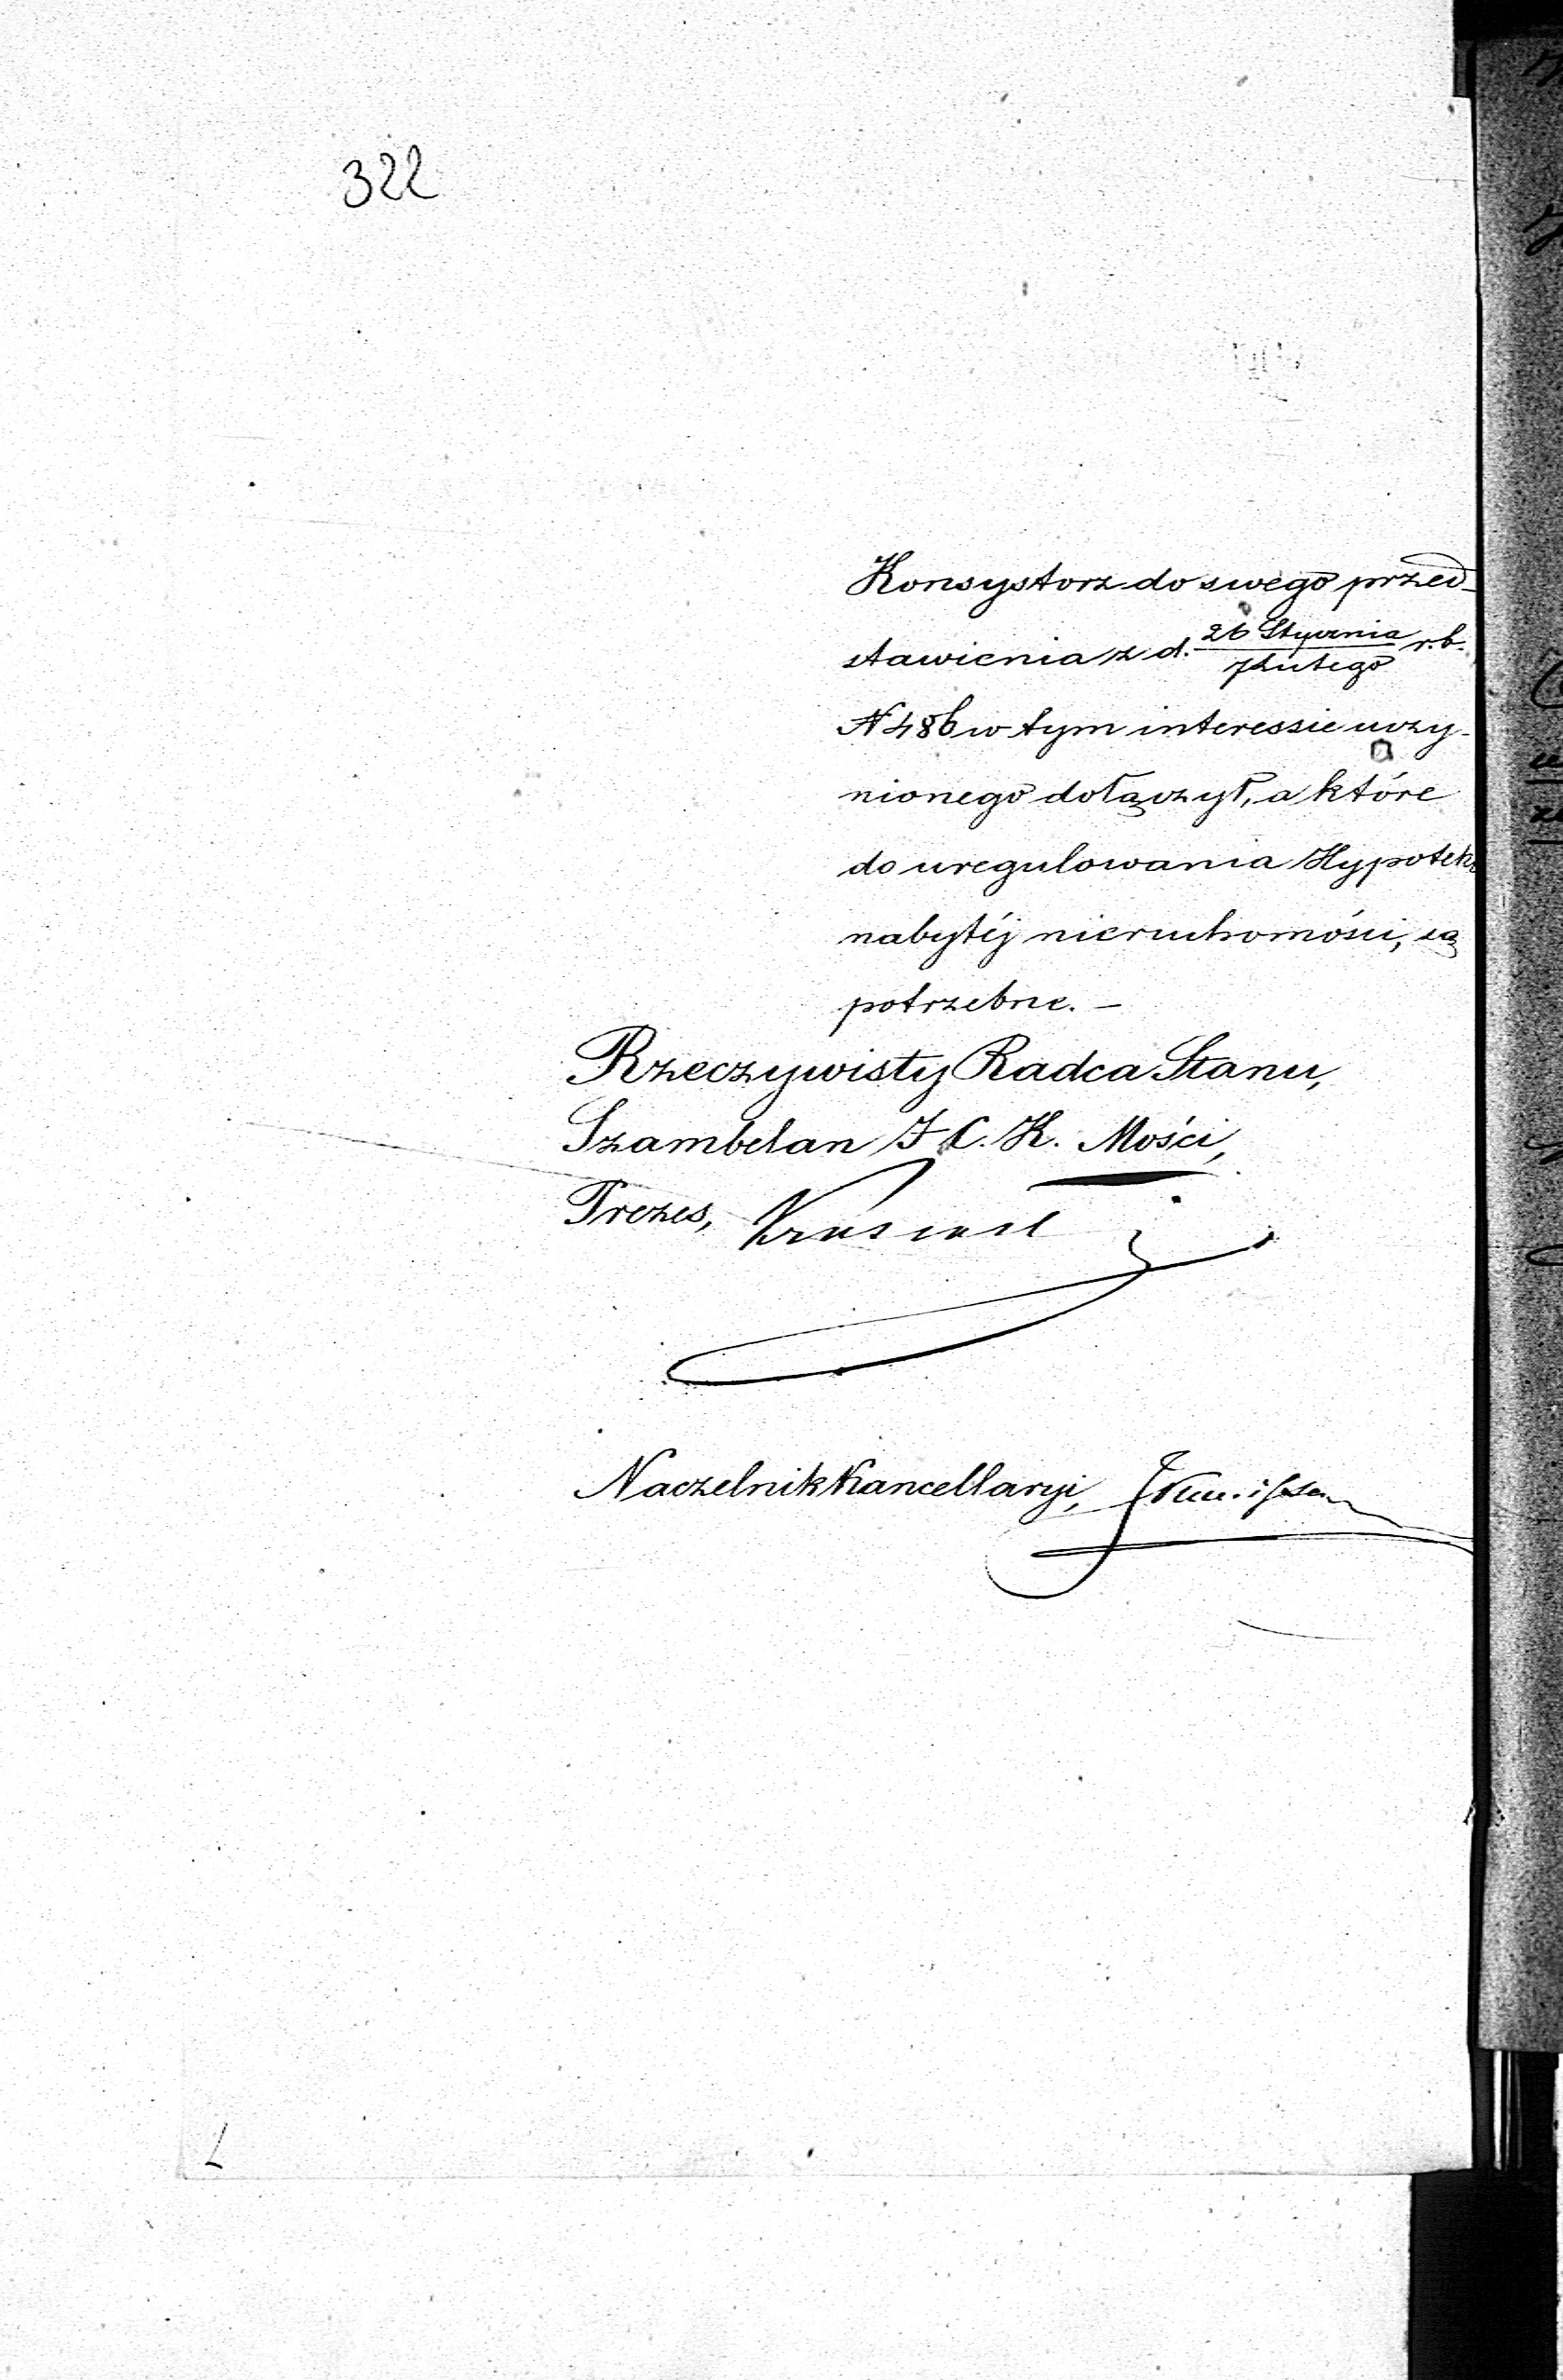 322
Konsystorz do swego przed-
stawienia z d. 26 Stycznia r. b.
7 Lutego
N 486 w tym interessie uczy-
nionego dołączył, a które
do uregulowania Hypoteki
nabytéj nieruchomości, są
potrzebne. —
Rzeczywisty Radca Stanu,
Szambelan J. C. K. Mości,
Prezes,
Naczelnik Kancellaryi,